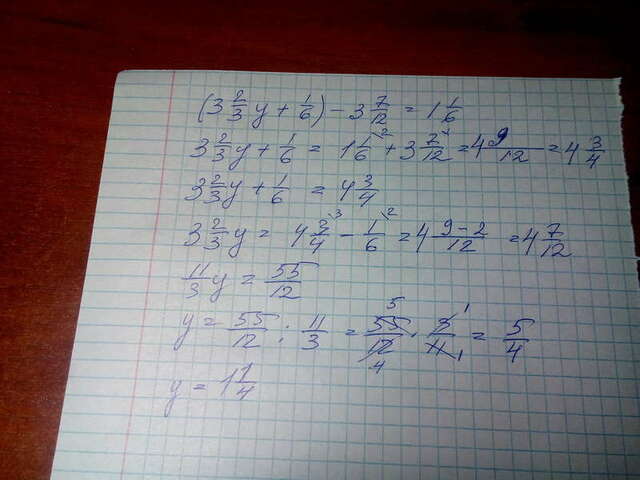 (3 2/3 y + 1/6) - 3 7/12 = 1 1/6
3 2/3 y + 1/6 = 1 1/6 \2 + 3 7/12 \1 = 4 9/12 = 4 3/4
3 2/3 y + 1/6 = 4 3/4
3 2/3 y = 4 3/4 \3 - 1/6 \2 = 4 9-2/12 = 4 7/12
11/3 y = 55/12
y = 55/12 : 11/3 = 55 5/12 4 · 3 1/11 1 = 5/4
y = 1 1/4